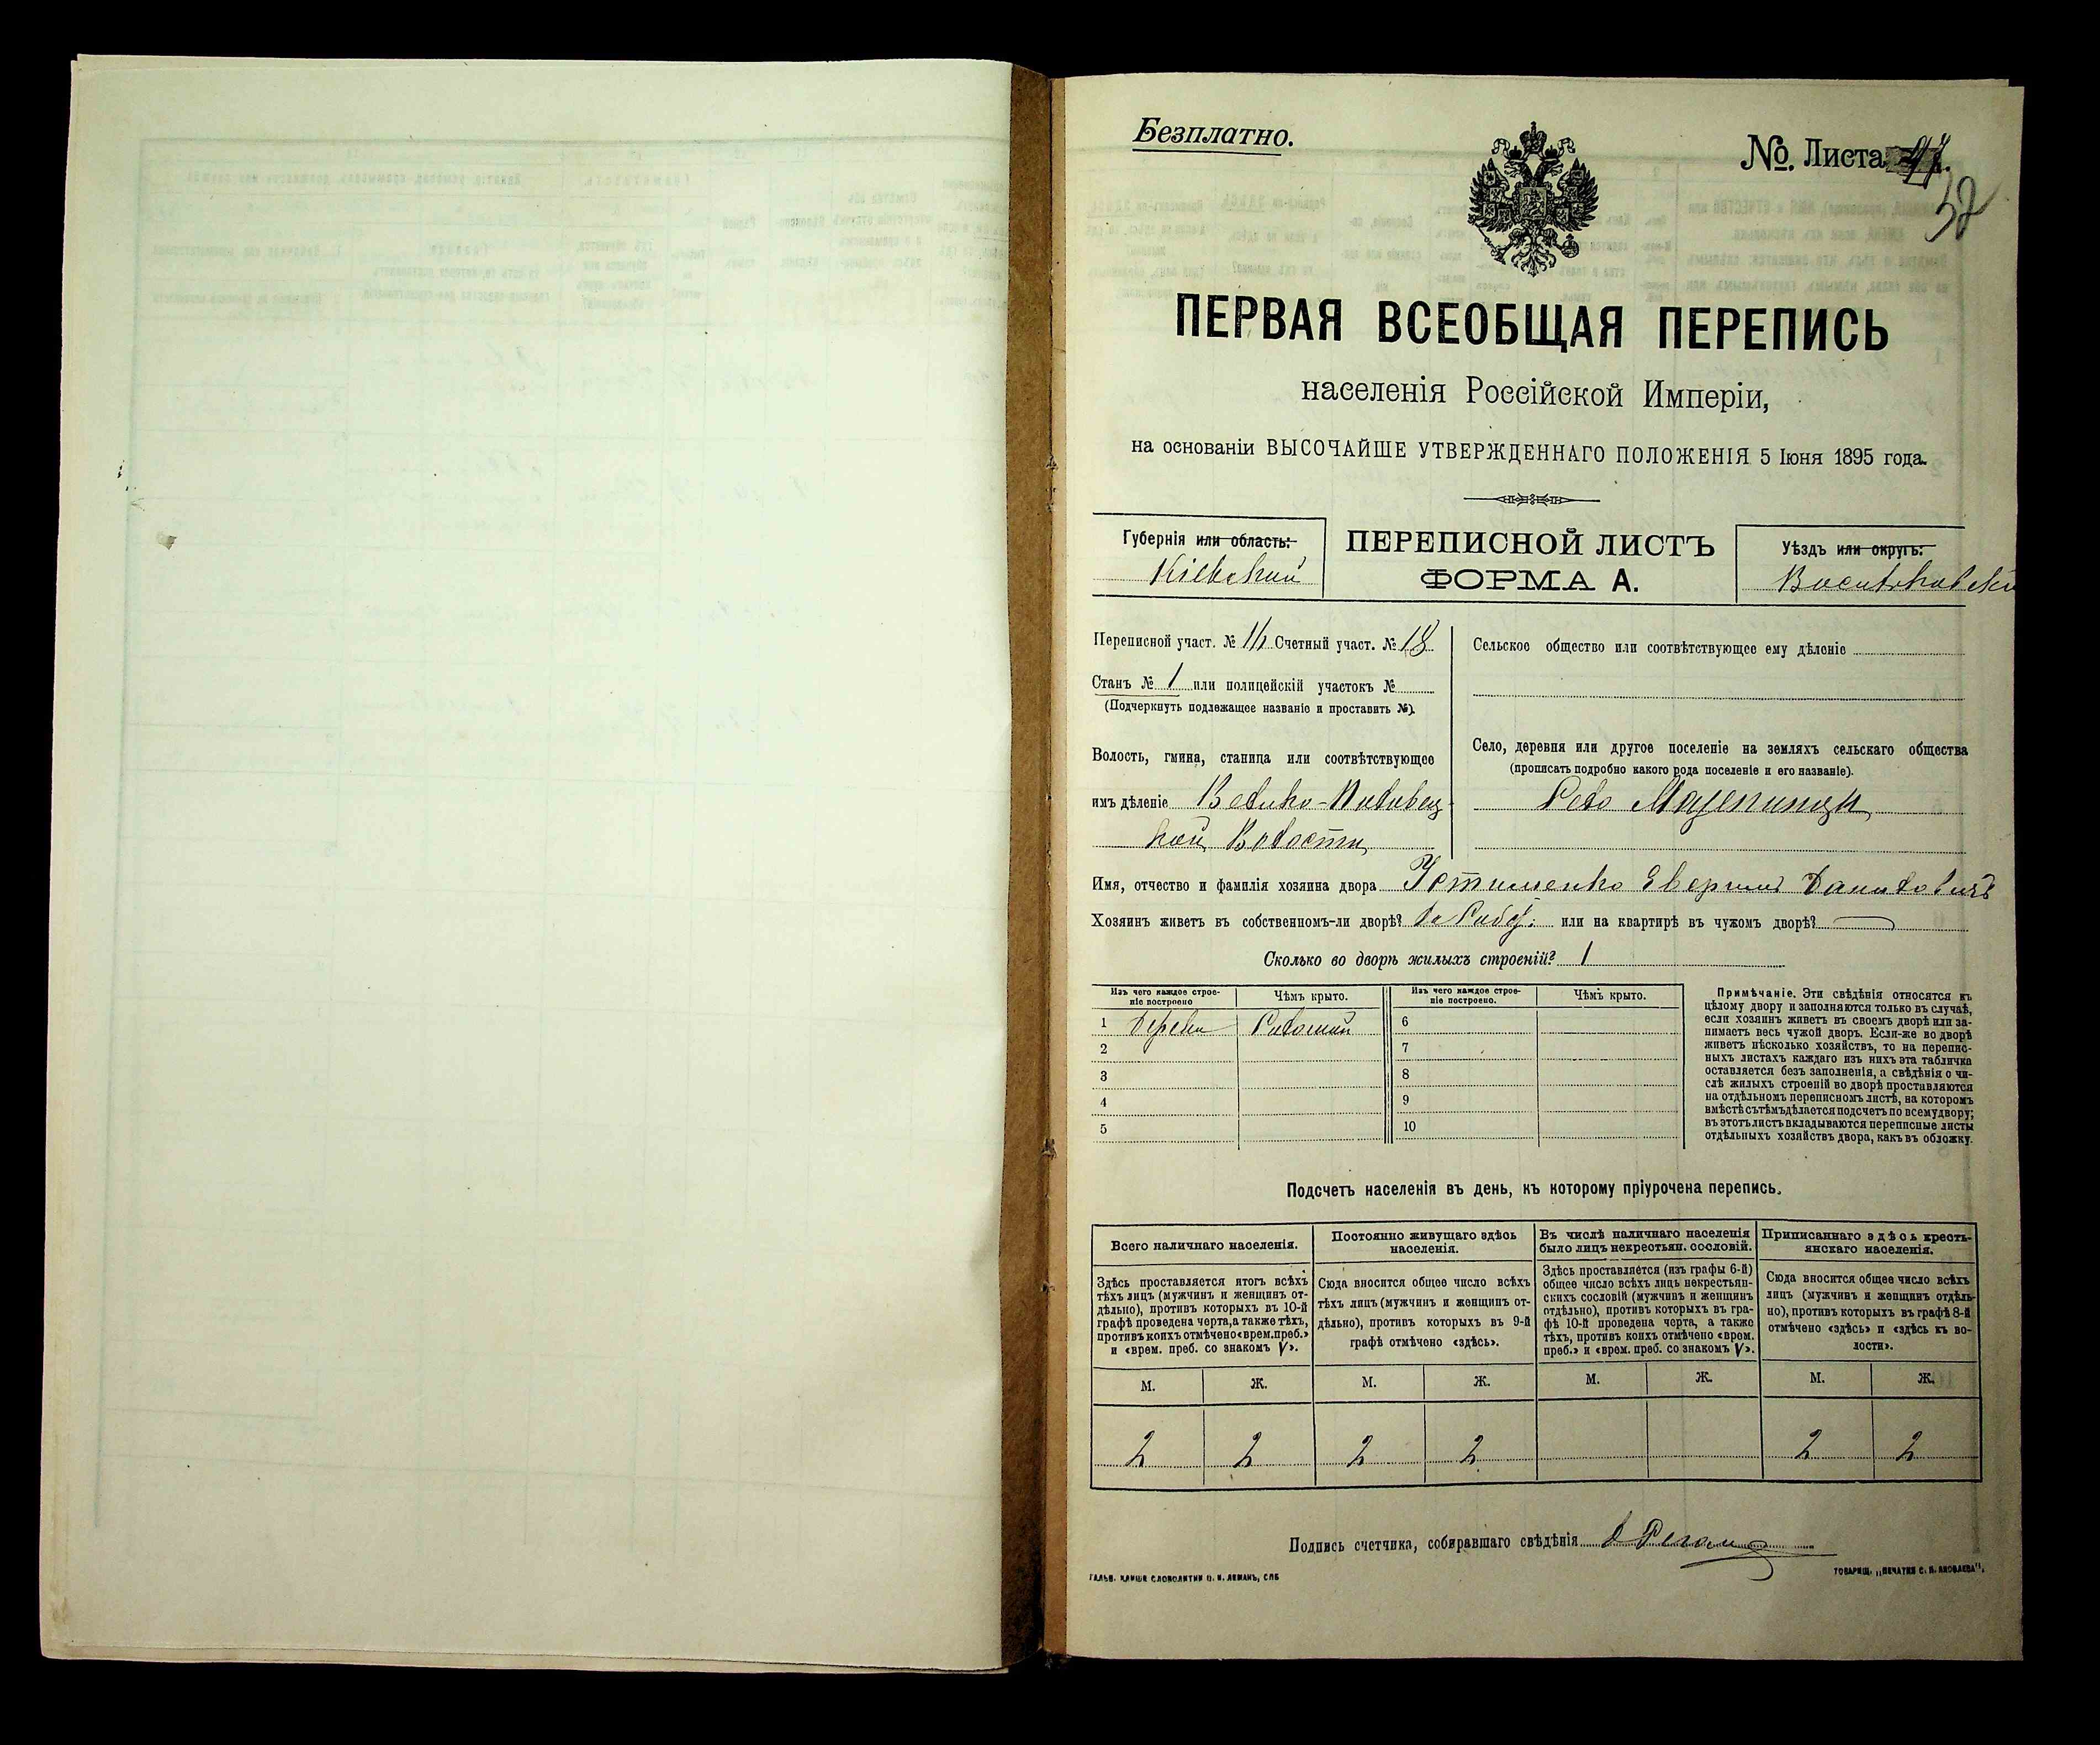 Безплатно.
№. Листа
52
ПЕРВАЯ ВСЕОБЩАЯ ПЕРЕПИСЬ
населенія Россійской Имперіи,
на основаніи ВЫСОЧАЙШЕ УТВЕРЖДЕННАГО ПОЛОЖЕНІЯ 5 Іюня 1895 года.
Губернія или область:
Кіевской
ПЕРЕПИСНОЙ ЛИСТЪ
ФОРМА А.
Уѣздъ или округъ:
Васильковскій
Переписной участ. № Счетный участ. № 18
Станъ № 1 или полицейскій участокъ №
(Подчеркнуть подлежащее названіе и проставить №).
Волость, гмина, станица или соотвѣтствующее
имъ дѣленіе Велико-Половец
кой Волости
Сельское общество или соотвѣтствующее ему дѣленіе
Село, деревня или другое поселеніе на земляхъ сельскаго общества
(прописать подробно какого рода поселеніе и его названіе).
Село Мазепинцы
Имя, отчество и фамилія хозяина двора Устименко Данилович
Хозяинъ живетъ въ собственномъ-ли дворѣ? или на квартирѣ въ чужомъ дворѣ?
Сколько во дворѣ жилыхъ строеній? 1
Изъ чего каждое строе-
ніе построено
Чѣмъ крыто.
Изъ чего каждое строе-
ніе построено.
Чѣмъ крыто.
1 Дерева Соломой
2
3
4
5
6
7
8
9
10
Примѣчаніе. Эти свѣдѣнія относятся къ
цѣлому двору и заполняются только въ случаѣ,
если хозяинъ живетъ въ своемъ дворѣ или за-
нимаетъ весь чужой дворъ. Если-же во дворѣ
живетъ нѣсколько хозяйствъ, то на перепис-
ныхъ листахъ каждаго изъ нихъ эта табличка
оставляется безъ заполненія, а свѣдѣнія о чи-
слѣ жилыхъ строеній во дворѣ проставляются
на отдѣльномъ переписномъ листѣ, на которомъ
вмѣстѣ съ тѣмъ дѣлается подсчетъ по всему двору;
въ этотъ листъ вкладываются переписные листы
отдѣльныхъ хозяйствъ двора, какъ въ обложку.
Подсчетъ населенія въ день, къ которому пріурочена перепись.
Всего наличнаго населенія.
Здѣсь проставляется итогъ всѣхъ
тѣхъ лицъ (мужчинъ и женщинъ от-
дѣльно), противъ которыхъ въ 10-й
графѣ проведена черта, а также тѣхъ,
противъ коихъ отмѣчено «врем. преб.»
и «врем. преб. со знакомъ V».
Постоянно живущаго здѣсь
населенія.
Сюда вносится общее число всѣхъ
тѣхъ лицъ (мужчинъ и женщинъ от-
дѣльно), противъ которыхъ въ 9-й
графѣ отмѣчено «здѣсь».
Въ числѣ наличнаго населенія
было лицъ некрестьян. сословій.
Здѣсь проставляется (изъ графы 6-й)
общее число всѣхъ лицъ некрестьян-
скихъ сословій (мужчинъ и женщинъ
отдѣльно), противъ которыхъ въ гра-
фѣ 10-й проведена черта, а также
тѣхъ, противъ коихъ отмѣчено «врем.
преб.» и «врем. преб. со знакомъ V».
Приписаннаго здѣсь кресть-
янскаго населенія.
Сюда вносится общее число всѣхъ
лицъ (мужчинъ и женщинъ отдѣль-
но), противъ которыхъ въ графѣ 8-й
отмѣчено «здѣсь» и «здѣсь къ во-
лости».
М. Ж. М. Ж. М. Ж. М. Ж.
2 2 2 2 2 2
Подпись счетчика, собиравшаго свѣдѣнія
ГАЛЬВ. КЛИШЕ СЛОВОЛИТНИ О. И. ЛЕМАНЪ, СПБ
ТОВАРИЩ. „ПЕЧАТНЯ С. П. ЯКОВЛЕВА".